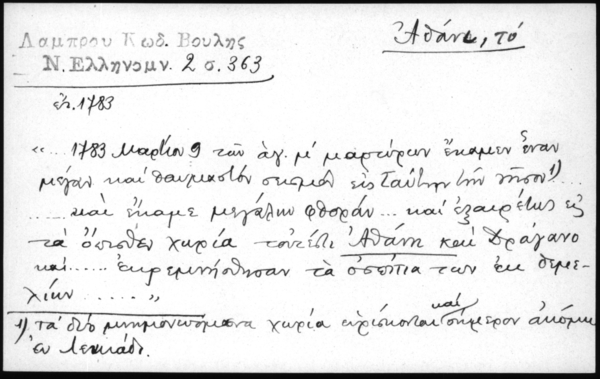 Ἀθάνι, τό
Λαμπρου Κωδ. Βουλης
Ν. Ελληνομν. 2 σ. 363
ἔτ. 1783
"... 1783 Μαρτίου 9 τῶν ἁγ. μ' μαρτύρων ἔκαμεν ἕναν
μέγαν καὶ θαυμαστόν σεισμόν εἰς ταύτην τὴν νῆσον 1) ....
.... καὶ ἔκαμε μεγάλην φθοράν ... καὶ ἐξαιρέτως εἰς
τὰ ὄπισθεν χωρία τουτέστι Ἀθάνι καὶ Δράγανο
καὶ ..... ἐκρεμνήσθησαν τὰ ὁσπίτια των ἐκ θεμε-
λίων ..... "
1) τὰ δύο μνημονευόμενα χωρία εὑρίσκονται καὶ σήμερον ἀκόμη
ἐν Λευκάδι.